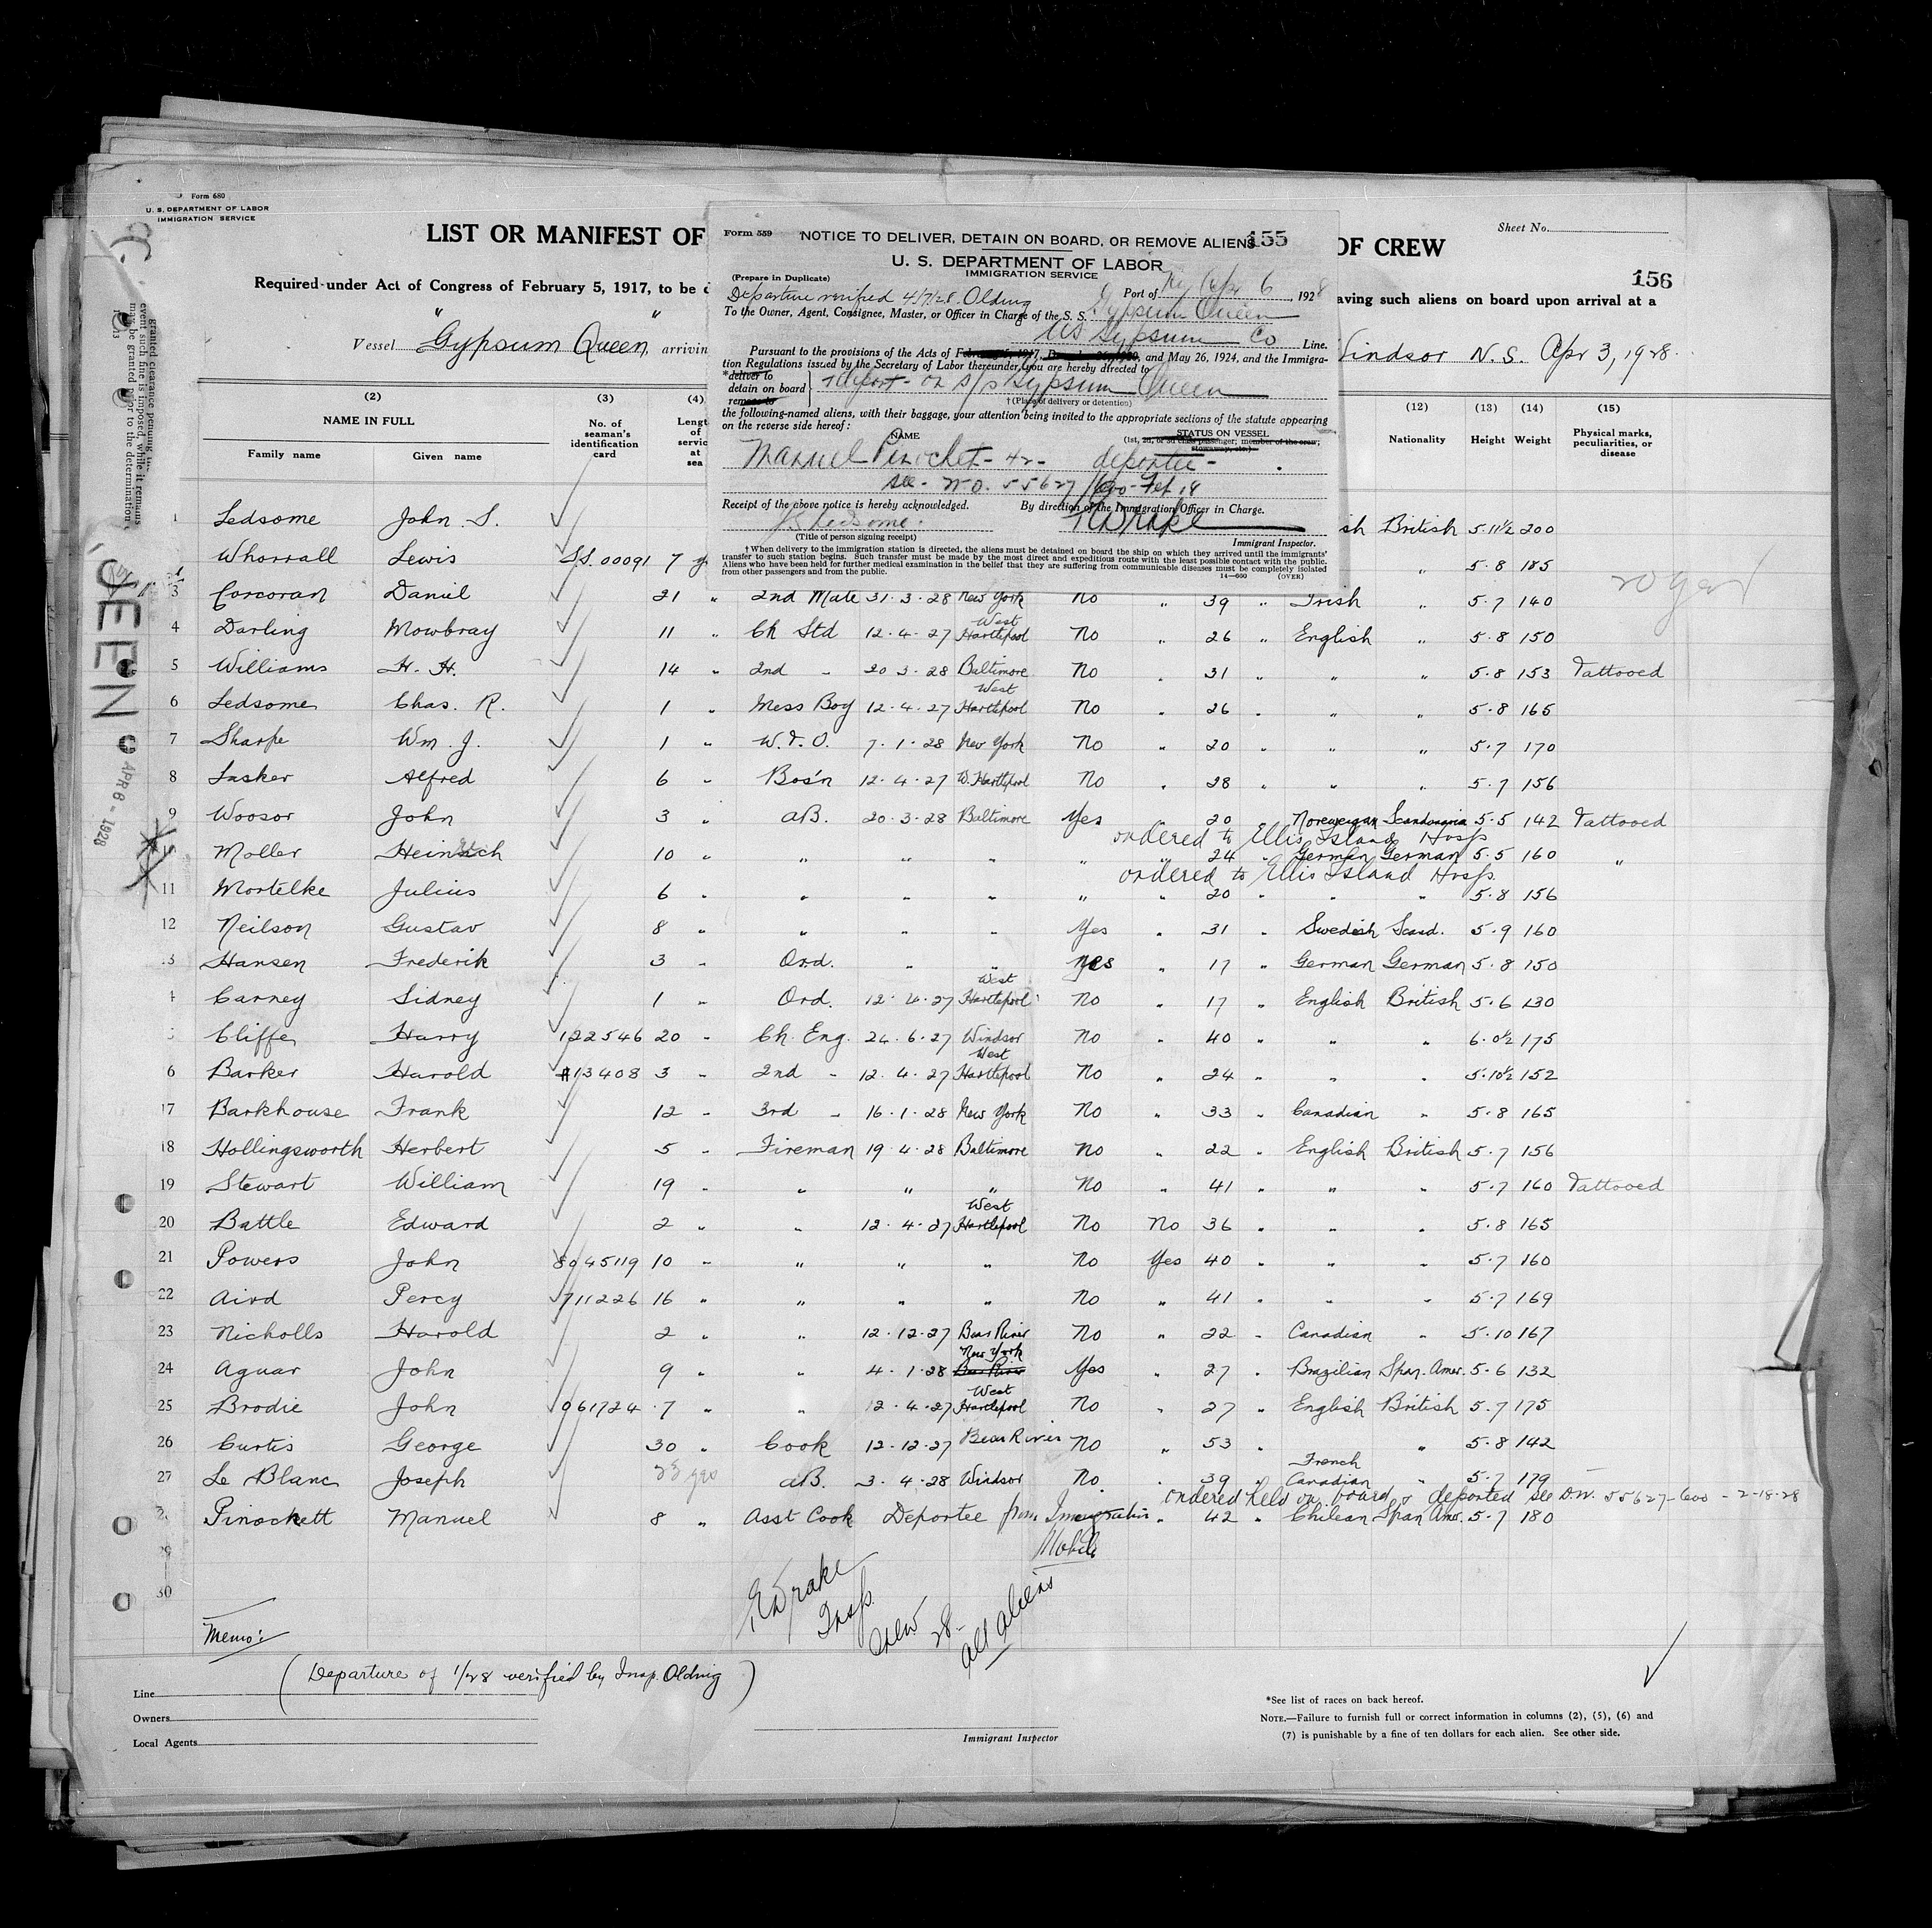 Form 680
U. S. DEPARTMENT OF LABOR
IMMIGRATION SERVICE
LIST OR MANIFEST OF
OF CREW
Sheet No.
156
Required under Act of Congress of February 5, 1917, to be
aving such aliens on board upon arrival at a
Vessel Gypsum Queen, arrivin
Windsor N.S. Apr 3, 1928.
Form 559
NOTICE TO DELIVER, DETAIN ON BOARD, OR REMOVE ALIENS
155
U. S. DEPARTMENT OF LABOR
IMMIGRATION SERVICE
(Prepare in Duplicate)
Departure verified 4/7/28. Olding
Port of NY Apr 6, 1928
To the Owner, Agent, Consignee, Master, or Officer in Charge of the S. S. Gypsum Queen
US Gypsum Co Line.
Pursuant to the provisions of the Acts of February 5, 1917, and May 26, 1924, and the Immigra-
tion Regulations issued by the Secretary of Labor thereunder, you are hereby directed to
*deliver to
detain on board
remove to
deport on s/s Gypsum Queen
†(Place of delivery or detention)
the following-named aliens, with their baggage, your attention being invited to the appropriate sections of the statute appearing
on the reverse side hereof:
NAME
STATUS ON VESSEL
(1st, 2d, or 3d class passenger; member of the crew;
stowaway, etc.)
Manuel Pinochet - 42 - deportee -
see - No. 55627/600 - Feb 18
Receipt of the above notice is hereby acknowledged.
By direction of the Immigration Officer in Charge.
Ledsome.
Drake
(Title of person signing receipt)
Immigrant Inspector.
†When delivery to the immigration station is directed, the aliens must be detained on board the ship on which they arrived until the immigrants'
transfer to such station begins. Such transfer must be made by the most direct and expeditious route with the least possible contact with the public.
Aliens who have been held for further medical examination in the belief that they are suffering from communicable diseases must be completely isolated
from other passengers and from the public.
14—660 (OVER)
(2) (3) (4) (12) (13) (14) (15)
NAME IN FULL
Family name Given name
No. of seaman's identification card
Lengt of servic at sea
Nationality Height Weight
Physical marks, peculiarities, or disease
1 Ledsome John S. sh British 5.11½ 200
Whorrall Lewis S.S. 00091 7 y " 5.8 185
3 Corcoran Daniel 21 " 2nd Mate 31.3.28 New York No " 39 " Irish " 5.7 140
4 Darling Mowbray 11 " Ch Std 12.4.27 West Hartlepool No " 26 " English " 5.8 150
5 Williams H. H. 14 " 2nd " 20.3.28 Baltimore No " 31 " " " 5.8 153 Tattooed
6 Ledsome Chas. R. 1 " Mess Boy 12.4.27 West Hartlepool No " 26 " " " 5.8 165
7 Sharpe Wm. J. 1 " W.T.O. 7.1.28 New York No " 20 " " " 5.7 170
8 Lasker Alfred 6 " Bos'n 12.4.27 W. Hartlepool No " 28 " " " 5.7 156
9 Woosor John 3 " AB. 20.3.28 Baltimore Yes 20 Norweigan Scandanavia 5.5 142 Tattooed
ordered to Ellis Island Hosp
Moller Heinrich 10 " " " " " " 24 " German German 5.5 160 "
ordered to Ellis Island Hosp.
11 Mortelke Julius 6 " " " " " " 20 " " " 5.8 156
12 Neilson Gustav 8 " " " " Yes " 31 " Swedish Scand. 5.9 160
13 Hansen Frederik 3 " Ord. " " Yes " 17 " German German 5.8 150
4 Carney Sidney 1 " Ord. 12.4.27 West Hartlepool No " 17 " English British 5.6 130
5 Cliffe Harry 122546 20 " Ch. Eng. 24.6.27 Windsor No " 40 " " " 6.0½ 175
6 Barker Harold #13408 3 " 2nd " 12.4.27 West Hartlepool No " 24 " " " 5.10½ 152
17 Barkhouse Frank 12 " 3rd " 16.1.28 New York No " 33 " Canadian " 5.8 165
18 Hollingsworth Herbert 5 " Fireman 19.4.28 Baltimore No " 22 " English British 5.7 156
19 Stewart William 19 " " " " No " 41 " " " 5.7 160 Tattooed
20 Battle Edward 2 " " 12.4.27 West Hartlepool No No 36 " " " 5.8 165
21 Powers John 8045119 10 " " " " No Yes 40 " " " 5.7 160
22 Aird Percy 711226 16 " " " " No " 41 " " " 5.7 169
23 Nicholls Harold 2 " " 12.12.27 Bear River No " 22 " Canadian " 5.10 167
24 Aguar John 9 " " 4.1.28 New York Bear River Yes " 27 " Brazilian Span. Amer. 5.6 132
25 Brodie John 061724 7 " " 12.4.27 West Hartlepool No " 27 " English British 5.7 175
26 Curtis George 30 " Cook 12.12.27 Bear River No " 53 " " 5.8 142
27 Le Blanc Joseph 23 yrs AB. 3.4.28 Windsor No. " 39 " French Canadian " 5.7 179
ordered held on board & deported see DW. 55627-600 - 2-18-28
Pinockett Manuel 8 " Asst Cook Deportee from Immigration Mobile " 42 " Chilean Span Amer. 5.7 180
29
30
20 year
E Drake
Insp.
Crew 28-
all aliens
Memo:
(Departure of 1/28 verified by Insp. Olding)
Line
Owners
Local Agents
Immigrant Inspector
*See list of races on back hereof.
NOTE.—Failure to furnish full or correct information in columns (2), (5), (6) and
(7) is punishable by a fine of ten dollars for each alien. See other side.
granted clearance pending
event such fine is imposed, while it remains
may be granted prior to the determination
QUEEN
APR 6 - 1928